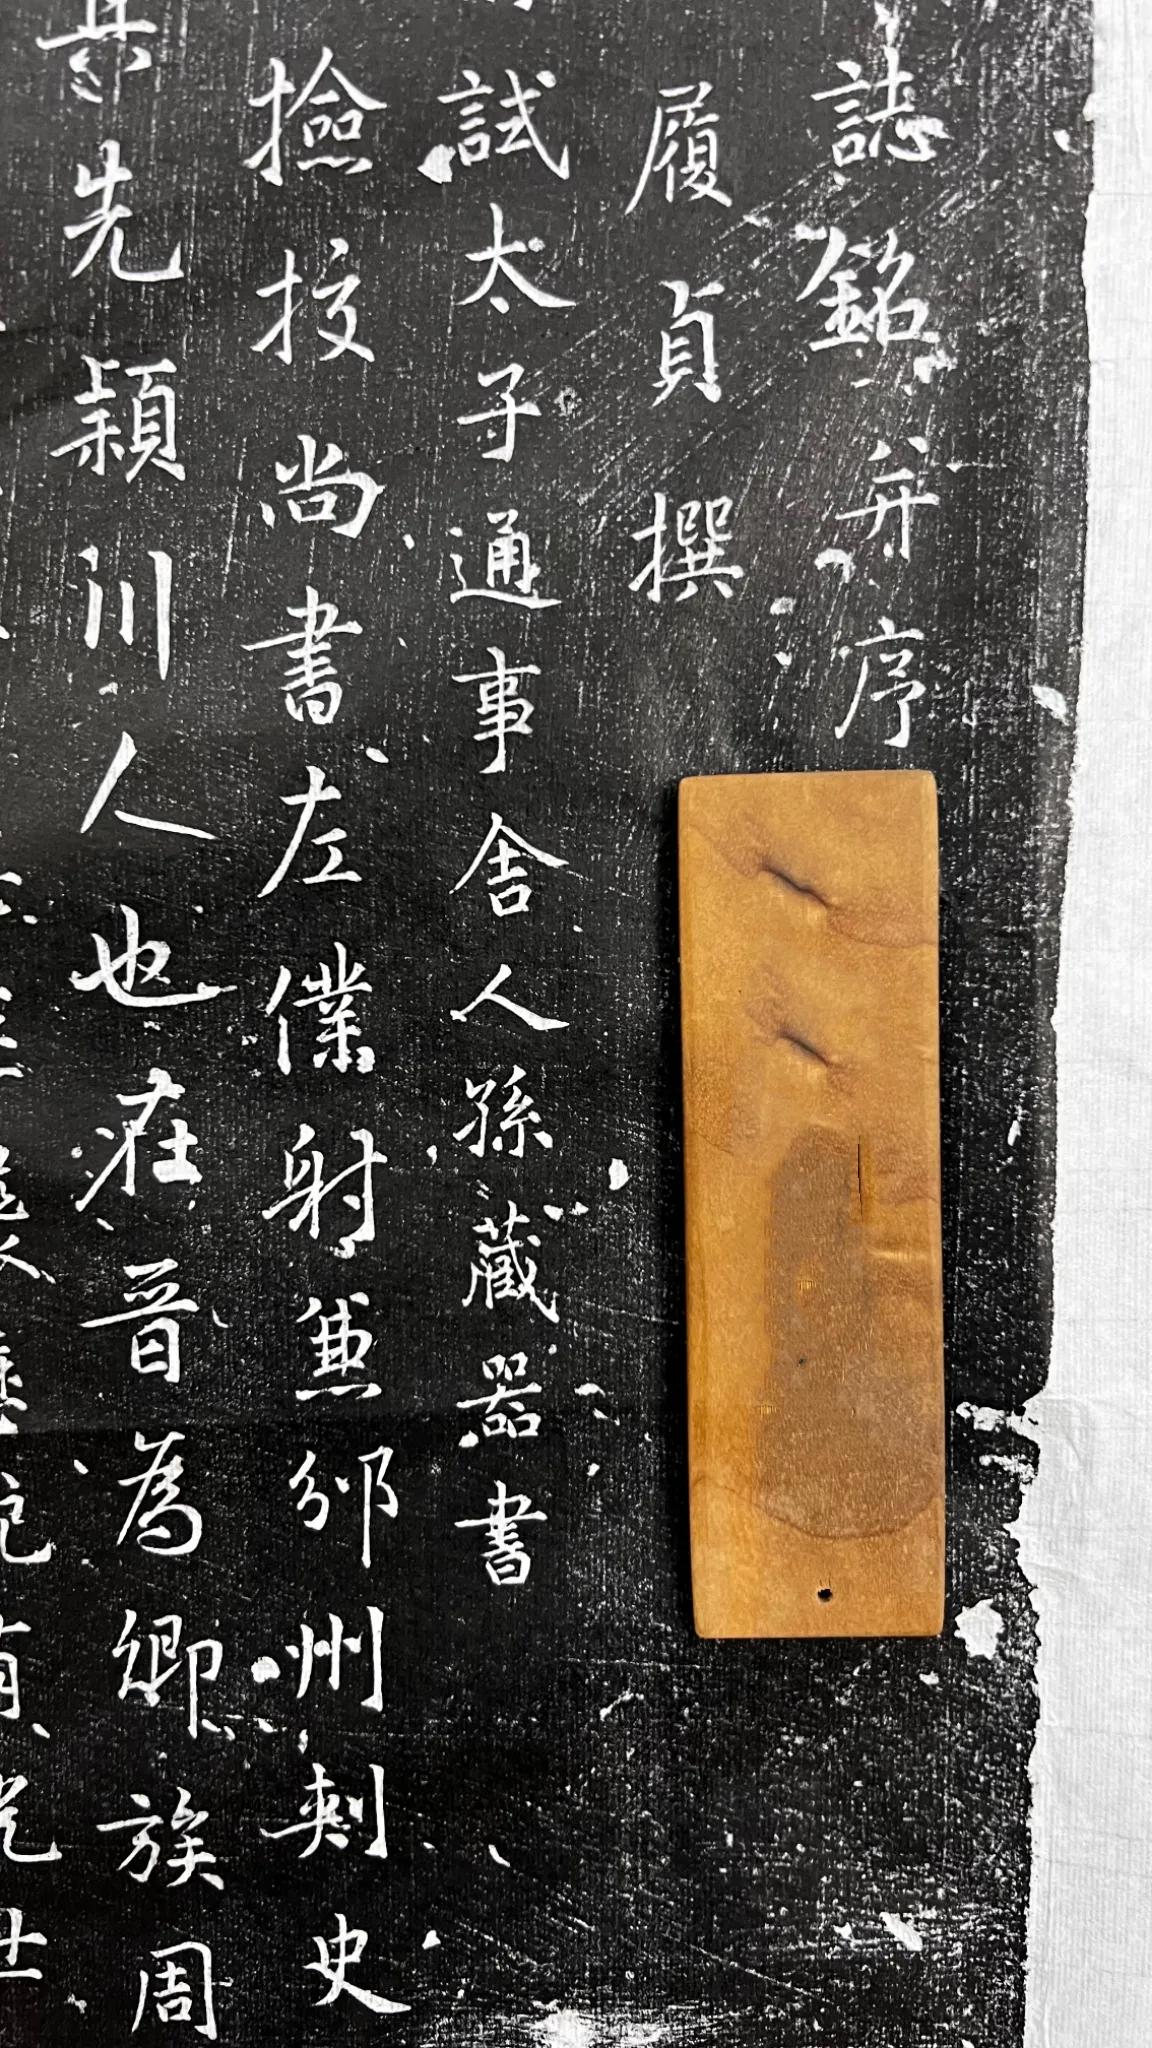 誌銘并序
履貞撰
試太子通事舍人孫藏器書
撿挍尚書左僕射兼邠州刺史
其先潁川人也在晉為卿族周